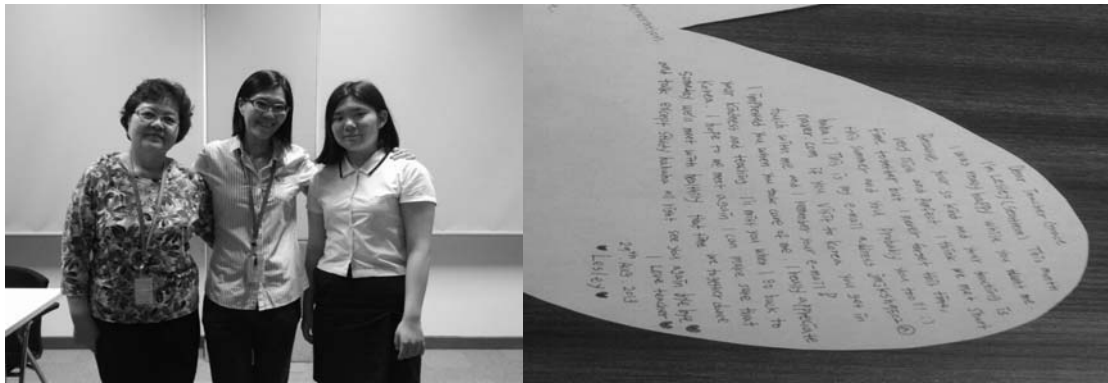 Dear Teacher
I'm Lesley This month
I was really happy while you taught me
Because your so kind and your teaching is
very nice and perfect. I think we met short
time together but I never forget this time,
this summer and you! Probably you too!! :)
haha :) This is my e-mail address @
naver.com if you visit to Korea, you get in
touch with me and I remember your e-mail!
I impressed you when you take care of me. I really appreciate
your kindness and teaching. I'll miss you when I go back to
Korea. I hope to we meet again. I can make sure that
someday we'll meet with healthy. That time we together dance
and talk except study hahaha all right see you again bye bye ♥
I Love teacher ♥
29th Aug 2013
♥Lesley♥